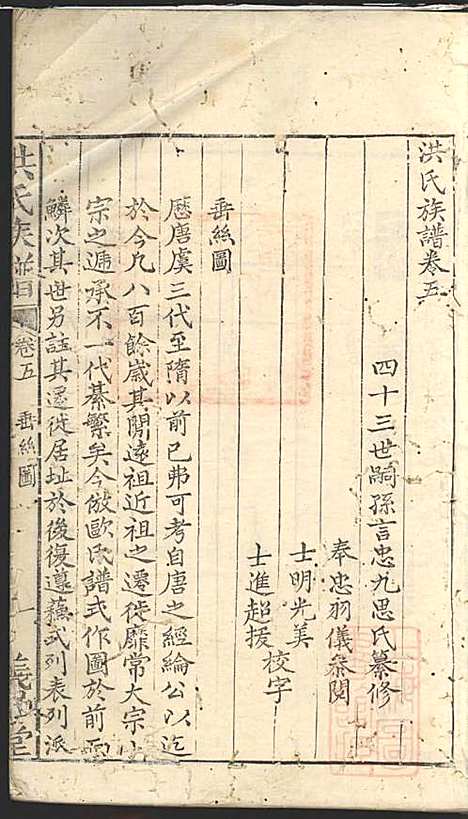 洪氏族譜卷五
四十三世嗣孫言忠九思氏纂修
奉忠羽儀叅閱
士明光美
士進超援
校字
垂絲圖
歷唐虞三代至隋以前已弗可考自唐之經綸公以迄
於今凡八百餘歲其間遠祖近祖之遷徙靡常大宗小
宗之遞承不一代綦繁矣今倣歐氏譜式作圖於前而
鱗次其世另註其遷徙居址於後復遵蘓式列表列派
洪氏族譜
卷五
垂絲圖
一
堂